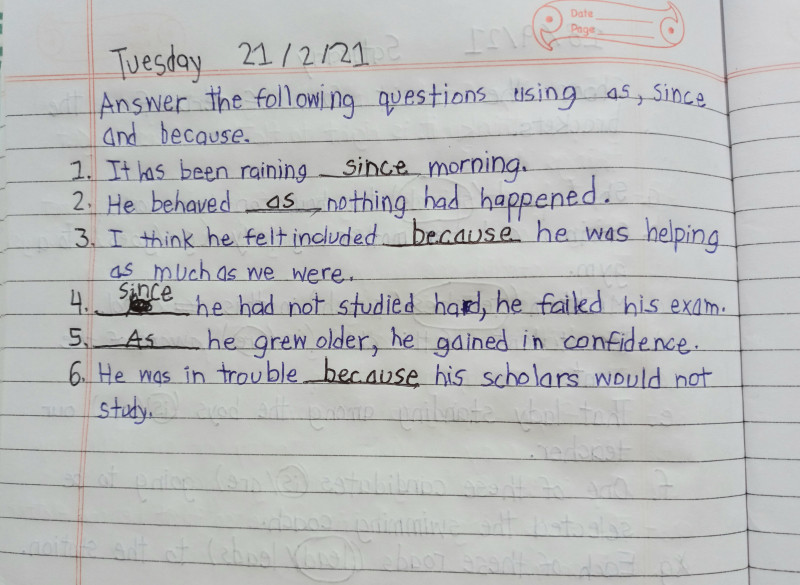 Date
Page
Tuesday 21/2/21
Answer the following questions using as, since
and because.
1. It has been raining since morning.
2. He behaved as nothing had happened.
3. I think he felt included because he was helping
as much as we were.
4. since he had not studied hard, he failed his exam.
5. As he grew older, he gained in confidence.
6. He was in trouble because his scholars would not
study.